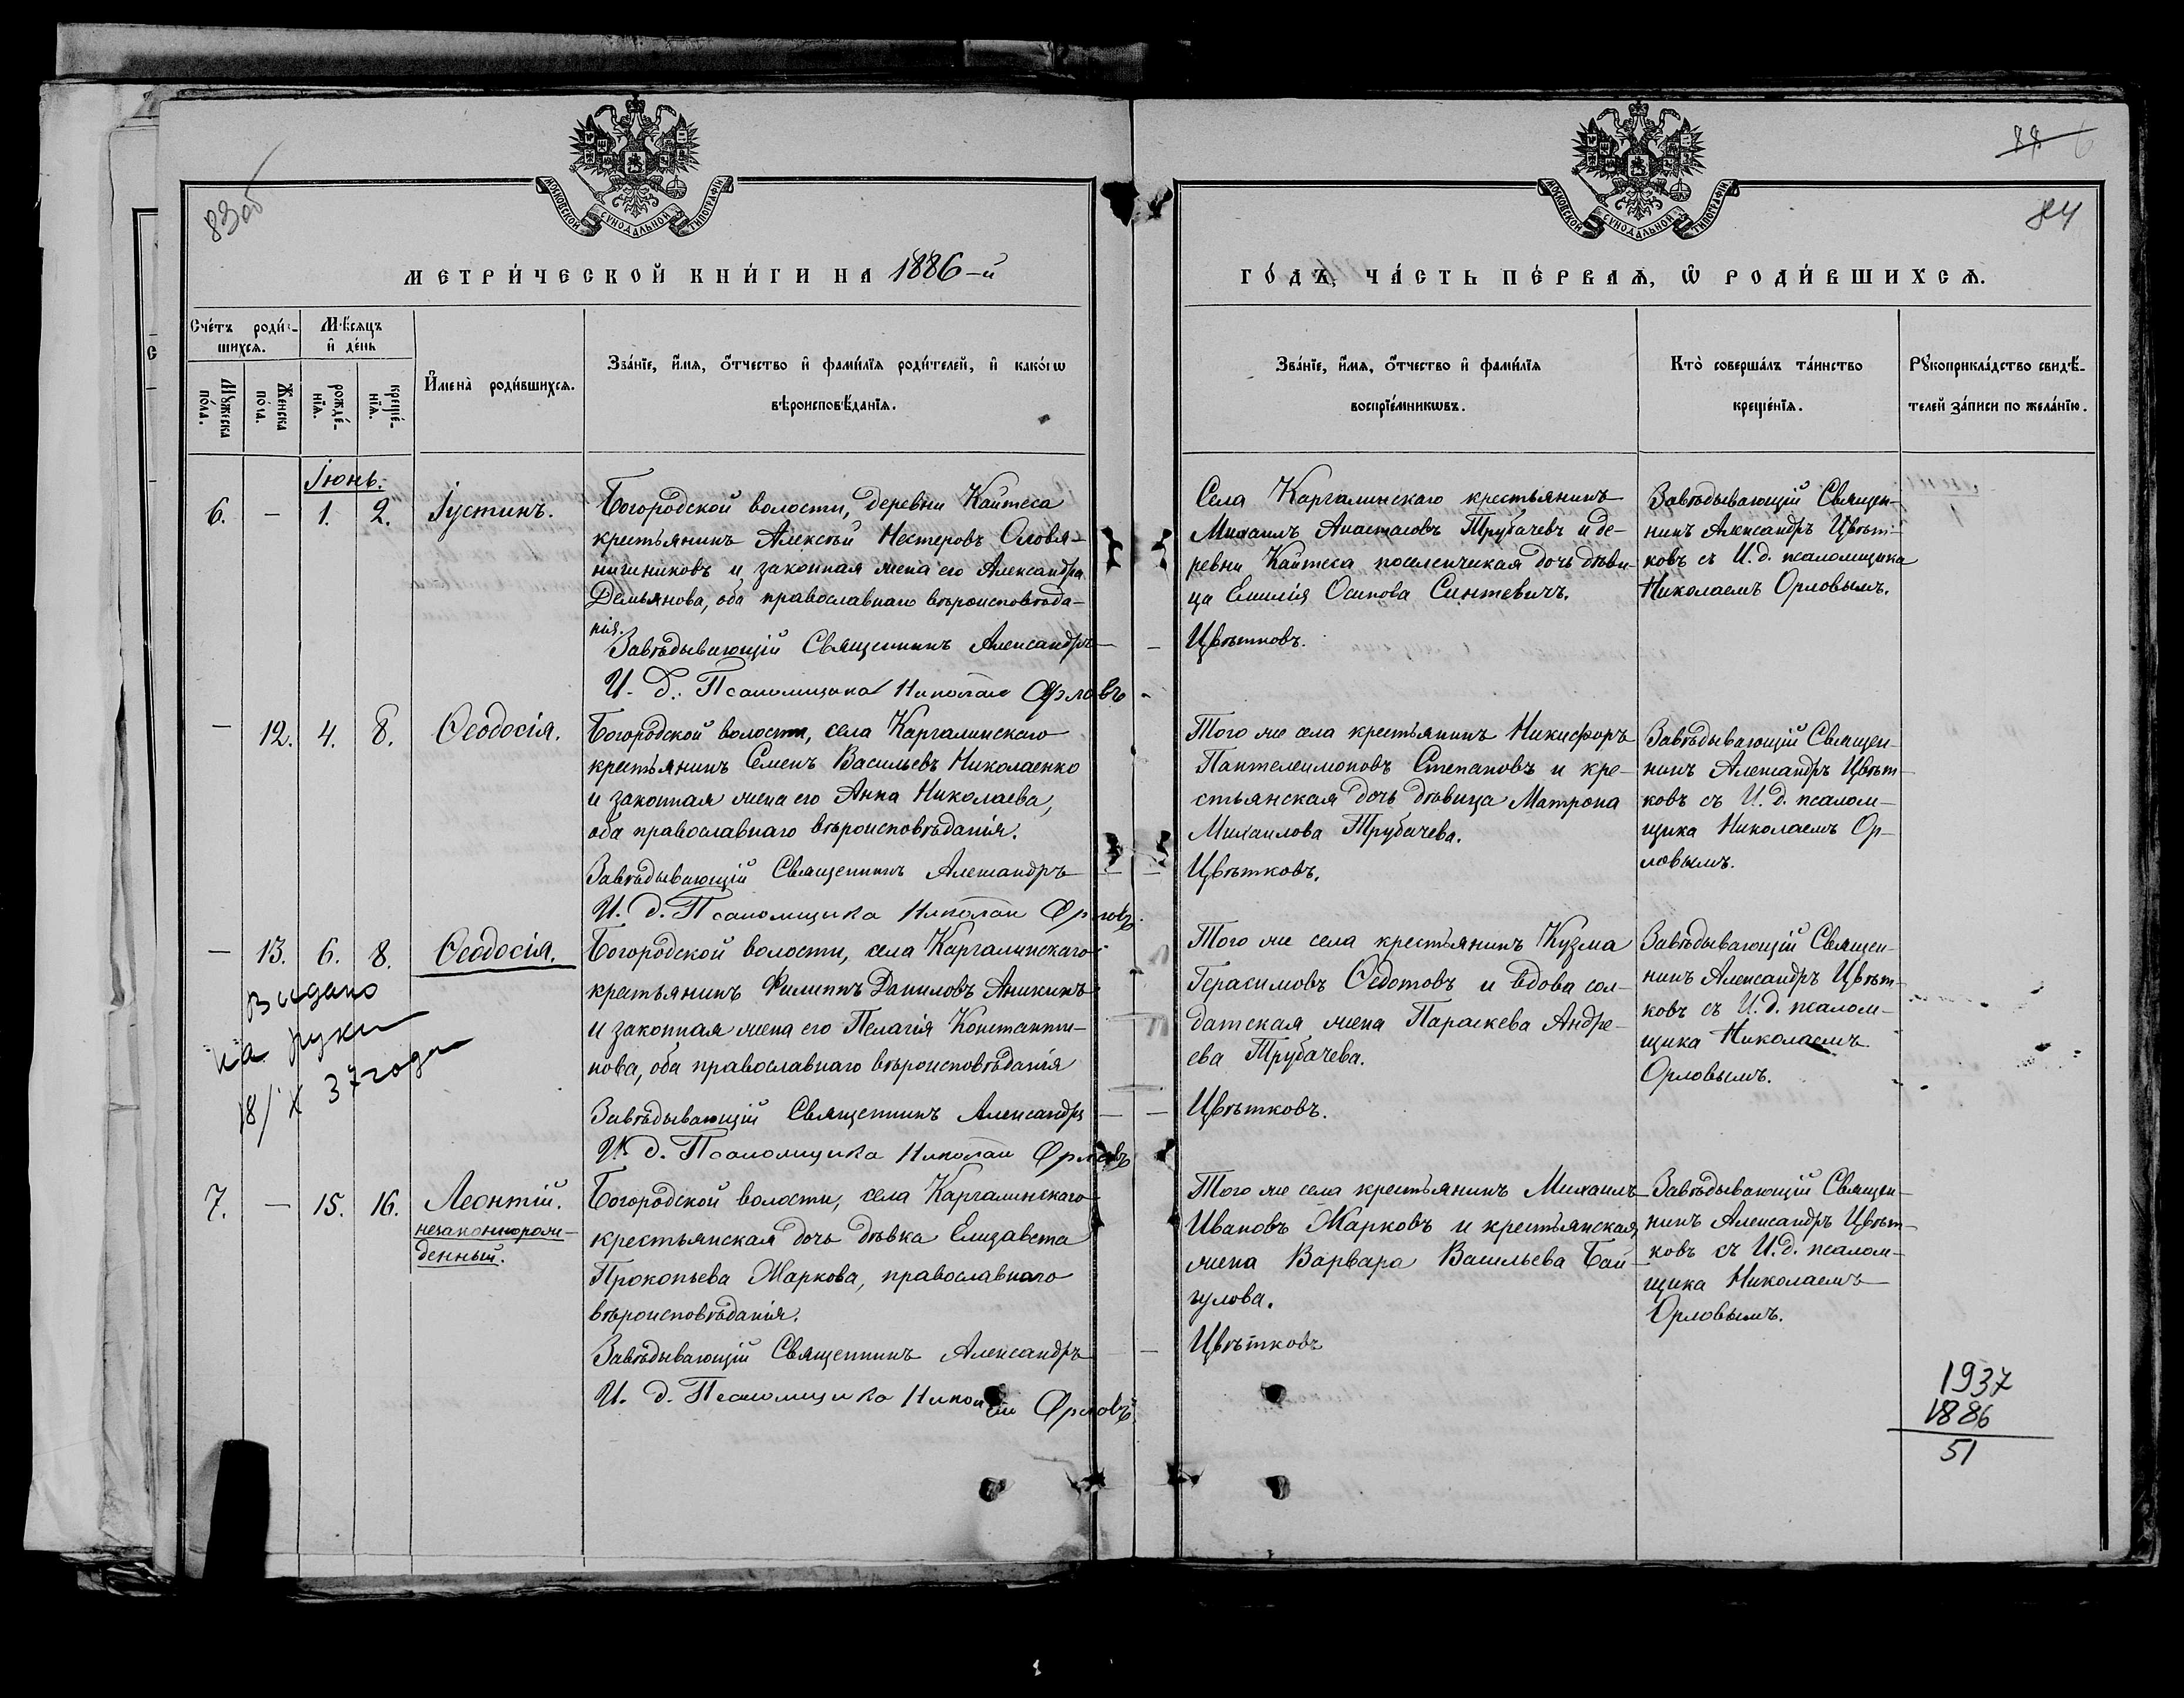 83об
МОСКОВСКОЙ СУНОДАЛЬНОЙ ТИПОГРАФІИ
МЕТРИ́ЧЕСКОЙ КНИ́ГИ НА 1886-й
Сче́тъ роди́вшихся.
Мѣ́сяцъ и҆ де́нь
Мꙋ́жеска по́ла.
Же́нска по́ла.
рожде́нїѧ.
креще́нїѧ.
И҆мена̀ роди́вшихсѧ.
Зва́нїе, и҆́мѧ, ѻ҆́тчество и҆ фами́лїѧ роди́телей, и҆ како́гѡ
вѣроисповѣ́данїѧ.
Іюнь.
6. — 1. 2. Іустинъ.
Богородской волости, деревни Кайтеса
крестьянинъ Алексѣй Нестеровъ Оловя-
нишниковъ и законная жена его Александра
Демьянова, оба православнаго вѣроисповѣда-
нія.
Завѣдывающій Священникъ Александръ —
И. д. Псаломщика Николай Орловъ
— 12. 4. 8. Ѳеодосія.
Богородской волости, села Каргалинскаго
крестьянинъ Семенъ Васильевъ Николаенко
и законная жена его Анна Николаева,
оба православнаго вѣроисповѣданія.
Завѣдывающій Священникъ Александръ —
И. д. Псаломщика Николай Орловъ.
— 13. 6. 8. Ѳеодосія.
Богородской волости, села Каргалинскаго
крестьянинъ Филиппъ Даниловъ Аникинъ
и законная жена его Пелагія Константи-
нова, оба православнаго вѣроисповѣданія
Завѣдывающій Священникъ Александръ —
И. д. Псаломщика Николай Орловъ
Выдано
на руки
18/X 37 года
7. — 15. 16. Леонтій.
незаконнорож-
денный.
Богородской волости, села Каргалинскаго
крестьянская дочь дѣвка Елизавета
Прокопьева Маркова, православнаго
вѣроисповѣданія.
Завѣдывающій Священникъ Александръ
И. д. Псаломщика Николай Орловъ
88 6
84
МОСКОВСКОЙ СУНОДАЛЬНОЙ ТИПОГРАФІИ
ГО́ДЪ, ЧА́СТЬ ПЕ́РВАѦ, Ѽ РОДИ́ВШИХСѦ.
Зва́нїе, и҆́мѧ, ѻ҆́тчество и҆ фами́лїѧ
воспрїе́мникѡвъ.
Кто̀ соверша́лъ та́инство
креще́нїѧ.
Рꙋкоприкла́дство свидѣ́-
телей за́писи по жела́нїю.
Села Каргалинскаго крестьянинъ
Михаилъ Анастасовъ Трубачевъ и де-
ревни Кайтеса поселенчикая дочь дѣви-
ца Емилія Осипова Синтевичъ.
— Цвѣтковъ.
Завѣдывающій Священ-
никъ Александръ Цвѣт-
ковъ съ И. д. псаломщика
Николаемъ Орловымъ.
Того же села крестьянинъ Никифоръ
Пантелеимоновъ Степановъ и кре-
стьянская дочь дѣвица Матрона
Михаилова Трубачева.
— Цвѣтковъ.
Завѣдывающій Священ-
никъ Александръ Цвѣт-
ковъ съ И. д. псалом-
щика Николаемъ Ор-
ловымъ.
Того же села крестьянинъ Кузма
Герасимовъ Ѳедотовъ и вдова сол-
датская жена Параскева Андре-
ева Трубачева.
— Цвѣтковъ.
Завѣдывающій Священ-
никъ Александръ Цвѣт-
ковъ съ И. д. псалом-
щика Николаемъ
Орловымъ.
Того же села крестьянинъ Михаилъ
Ивановъ Жарковъ и крестьянская
жена Варвара Васильева Бай-
гулова.
— Цвѣтковъ
Завѣдывающій Священ-
никъ Александръ Цвѣт-
ковъ съ И. д. псалом-
щика Николаемъ
Орловымъ.
1937
1886
51